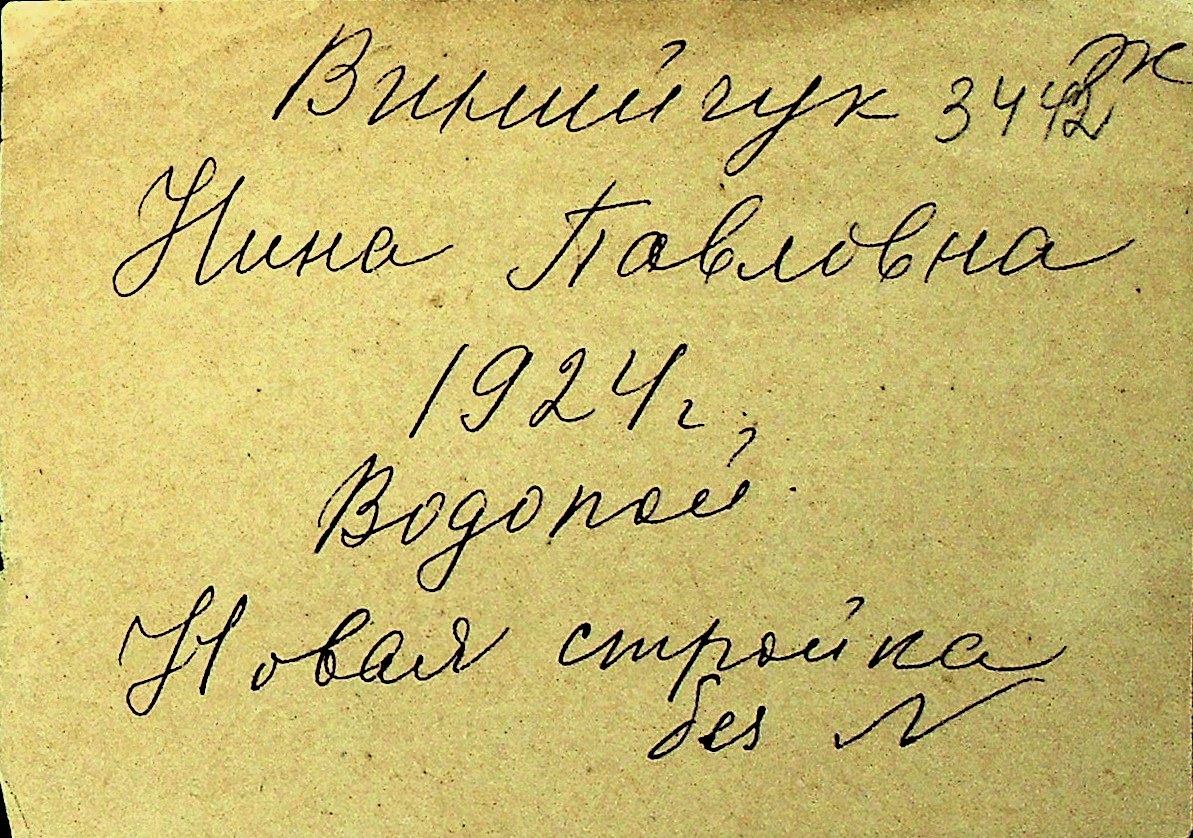 Винийчук 3442
Нина Павловна
1924г.
Водопой
Новая стройка
без N